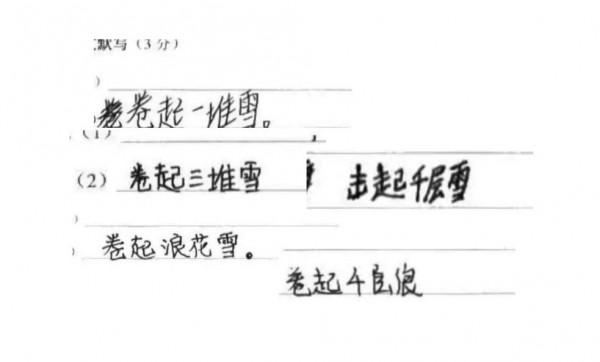 默写（3分）
）
卷起一堆雪。
（1） ，
（2） 卷起三堆雪
击起千层雪
）
） 卷起浪花雪。
卷起千层浪